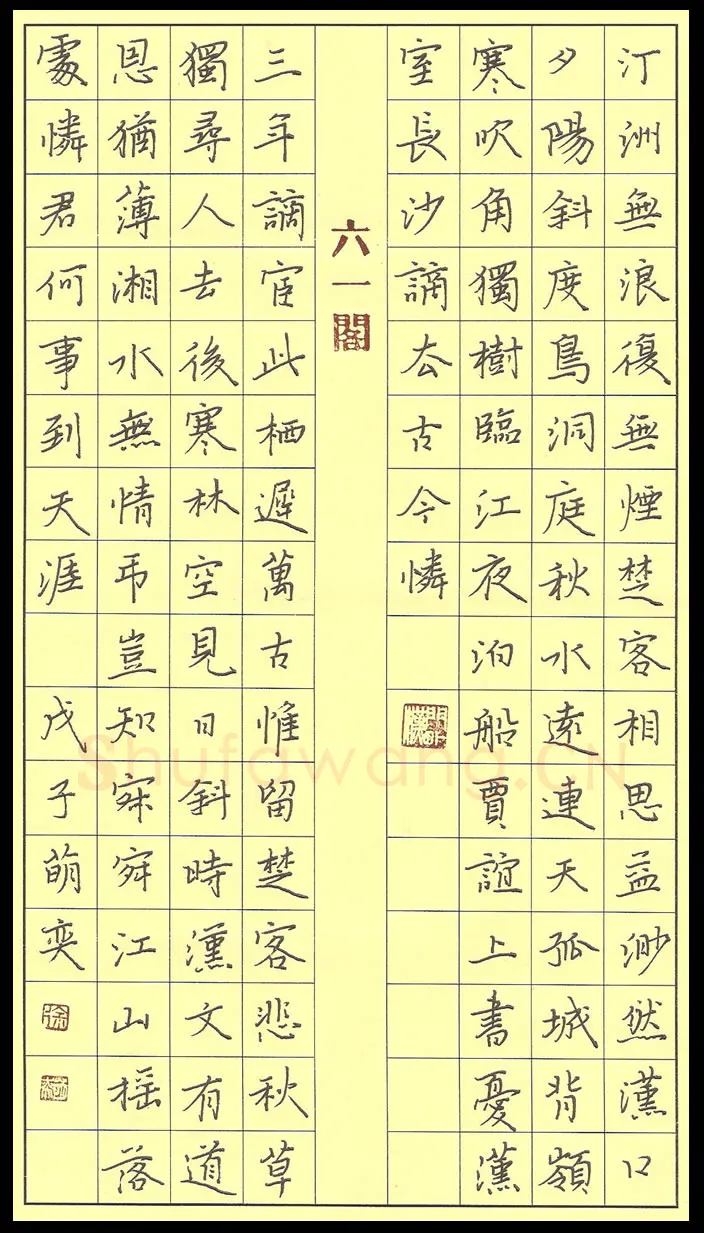 汀洲無浪復無煙楚客相思益渺然漢口
夕陽斜度鳥洞庭秋水遠連天孤城背嶺
寒吹角獨樹臨江夜泊船賈誼上書憂漢
室長沙謫去古今憐
六一閣
三年謫宦此栖遲萬古惟留楚客悲秋草
獨尋人去後寒林空見日斜時漢文有道
恩猶薄湘水無情弔豈知寂寂江山搖落
處憐君何事到天涯 戊子萌奕
Shufawang.CN